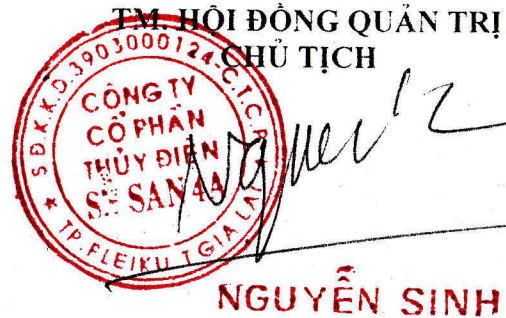 TM. HỘI ĐỒNG QUẢN TRỊ
CHỦ TỊCH
S.Đ.K.K.D.3903000124-C.T.C.P
CÔNG TY
CỔ PHẦN
THỦY ĐIỆN
SÊ SAN 4A
TP.PLEIKU T.GIA LAI
NGUYỄN SINH